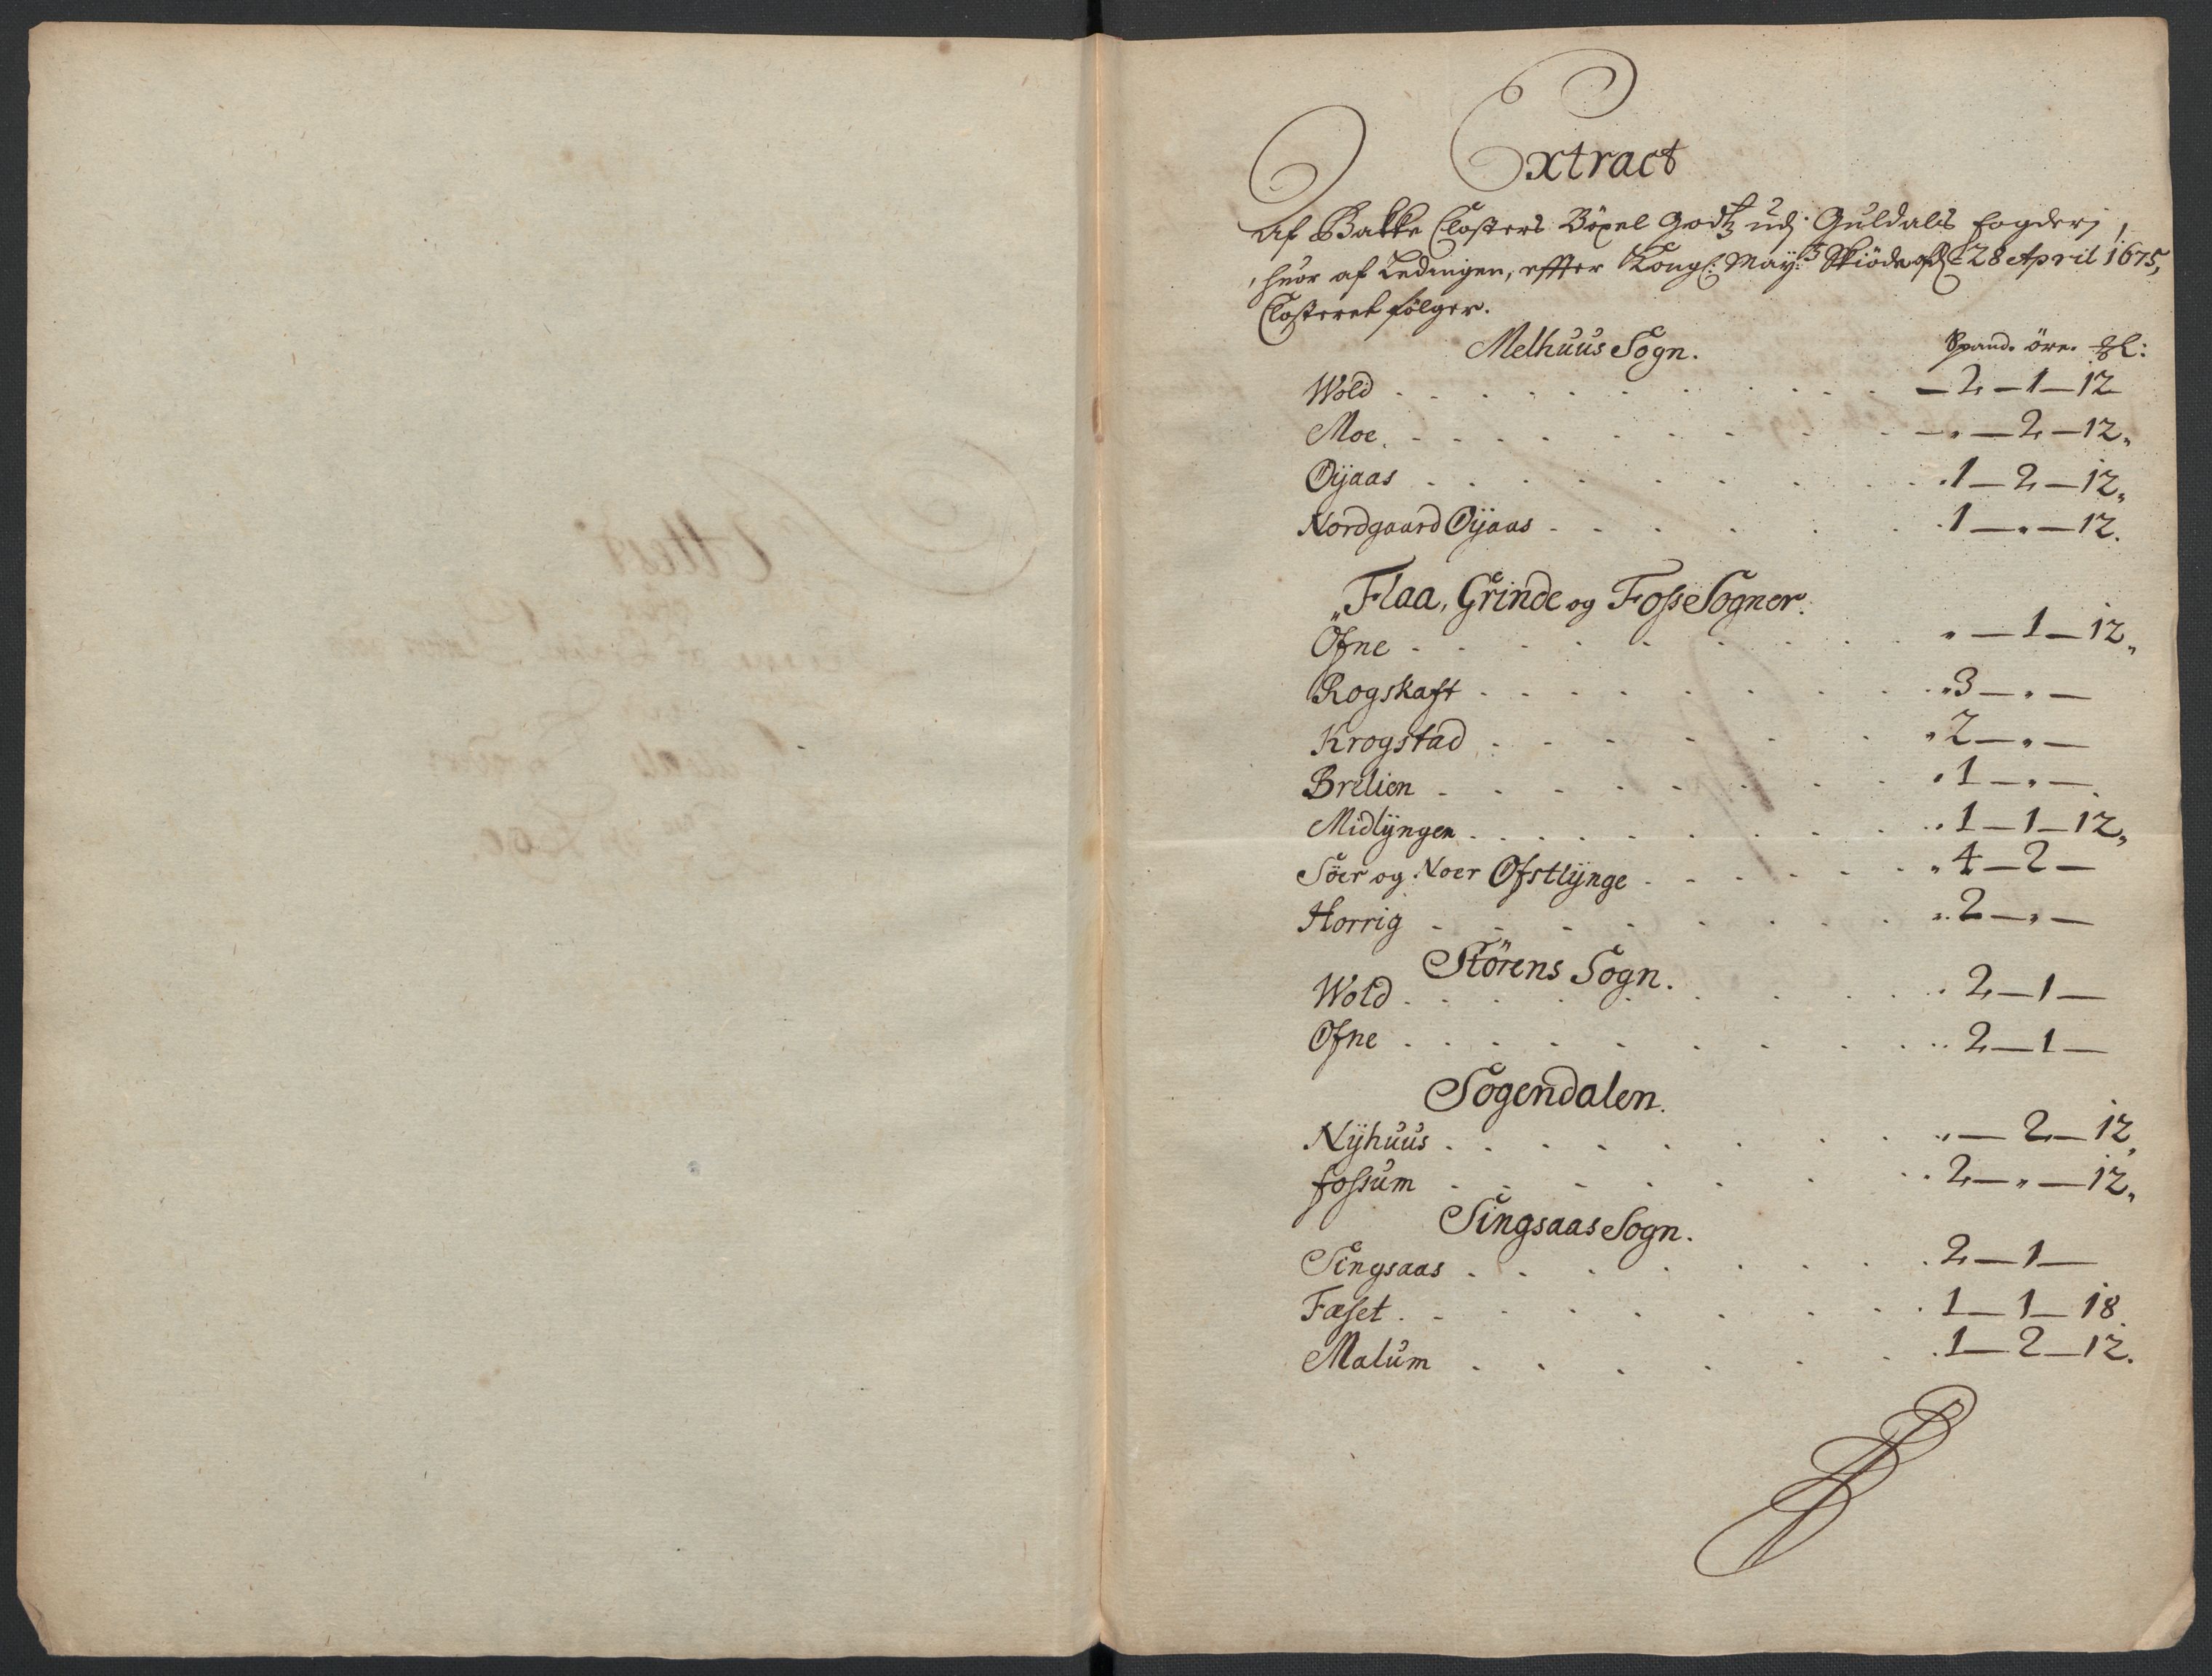 Extract
Af Bakke Closters Böxel Godtz udj Guldals fogderj,
huor af Ledingen, effter Kongl: May:tz Skiöde af 28 April 1675,
Closteret fölger.
Melhuus Sogn. Spand. öre. ℔:
Wold . . . . . . . . — 2 — 1 — 12
Moe. . . . . . . . . — „ — 2 — 12„
Öÿaas . . . . . . . . 1 — 2 — 12„
Nordgaard Öÿaas . . . . . . 1 — „ — 12.
„Flaa, Grinde og Fosse Sogner.
Ofne . . . . . . . . „ — 1 — 12„
Rogskaft . . . . . . . . „3 — „ —
Krogstad . . . . . . . „2 — „ —
Brelien . . . . . . . . „1 — „ —
Midlÿngen . . . . . . . . „1 — 1 — 12„
Söer og Noer Ofstlÿnge . . . . . . „4 — 2 —
Horrig . . . . . . . . „2 — „ —
Störens Sogn.
Wold . . . . . . . . . 2 — 1 —
Ofne . . . . . . . . . 2 — 1 —
Sogendalen.
Nÿhuus . . . . . . . . „ — 2 — 12„
fossum . . . . . . . . 2 — „ — 12„
Singsaas Sogn.
Singsaas . . . . . . . . 2 — 1 —
Fæset . . . . . . . . 1 — 1 — 18
Malum . . . . . . . 1 — 2 — 12.